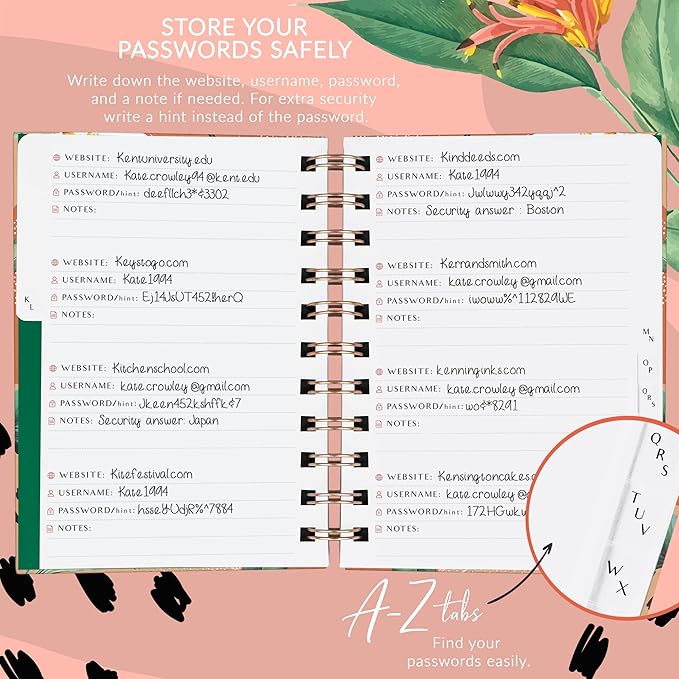 STORE YOUR
PASSWORDS SAFELY
Write down the website, username, password,
and a note if needed. For extra security
write a hint instead of the password.
WEBSITE: Kentuniversity.edu
USERNAME: Kate.crowley94@kent.edu
PASSWORD/hint: deefllch3*¢3302
NOTES:
WEBSITE: Keystogo.com
USERNAME: Kate1994
PASSWORD/hint: Ej14JsUT452IherQ
NOTES:
WEBSITE: Kitchenschool.com
USERNAME: kate.crowley@gmail.com
PASSWORD/hint: Jkeen452kshffk¢7
NOTES: Security answer: Japan
WEBSITE: Kitefestival.com
USERNAME: Kate1994
PASSWORD/hint: hsseYUdjR%^7884
NOTES:
K
L
WEBSITE: Kinddeeds.com
USERNAME: Kate1994
PASSWORD/hint: Jwlwwy342yqqj^2
NOTES: Security answer : Boston
WEBSITE: Kerrandsmith.com
USERNAME: kate.crowley@gmail.com
PASSWORD/hint: iwoww%^112829WE
NOTES:
WEBSITE: kenninginks.com
USERNAME: kate.crowley@gmail.com
PASSWORD/hint: wo¢*8291
NOTES:
WEBSITE: Kensingtoncakes.c
USERNAME: kate.crowley@g
PASSWORD/hint: 172HGwkw
NOTES:
M
N
O
P
Q
R
S
Q
R
S
T
U
V
W
X
A-Z tabs
Find your
passwords easily.